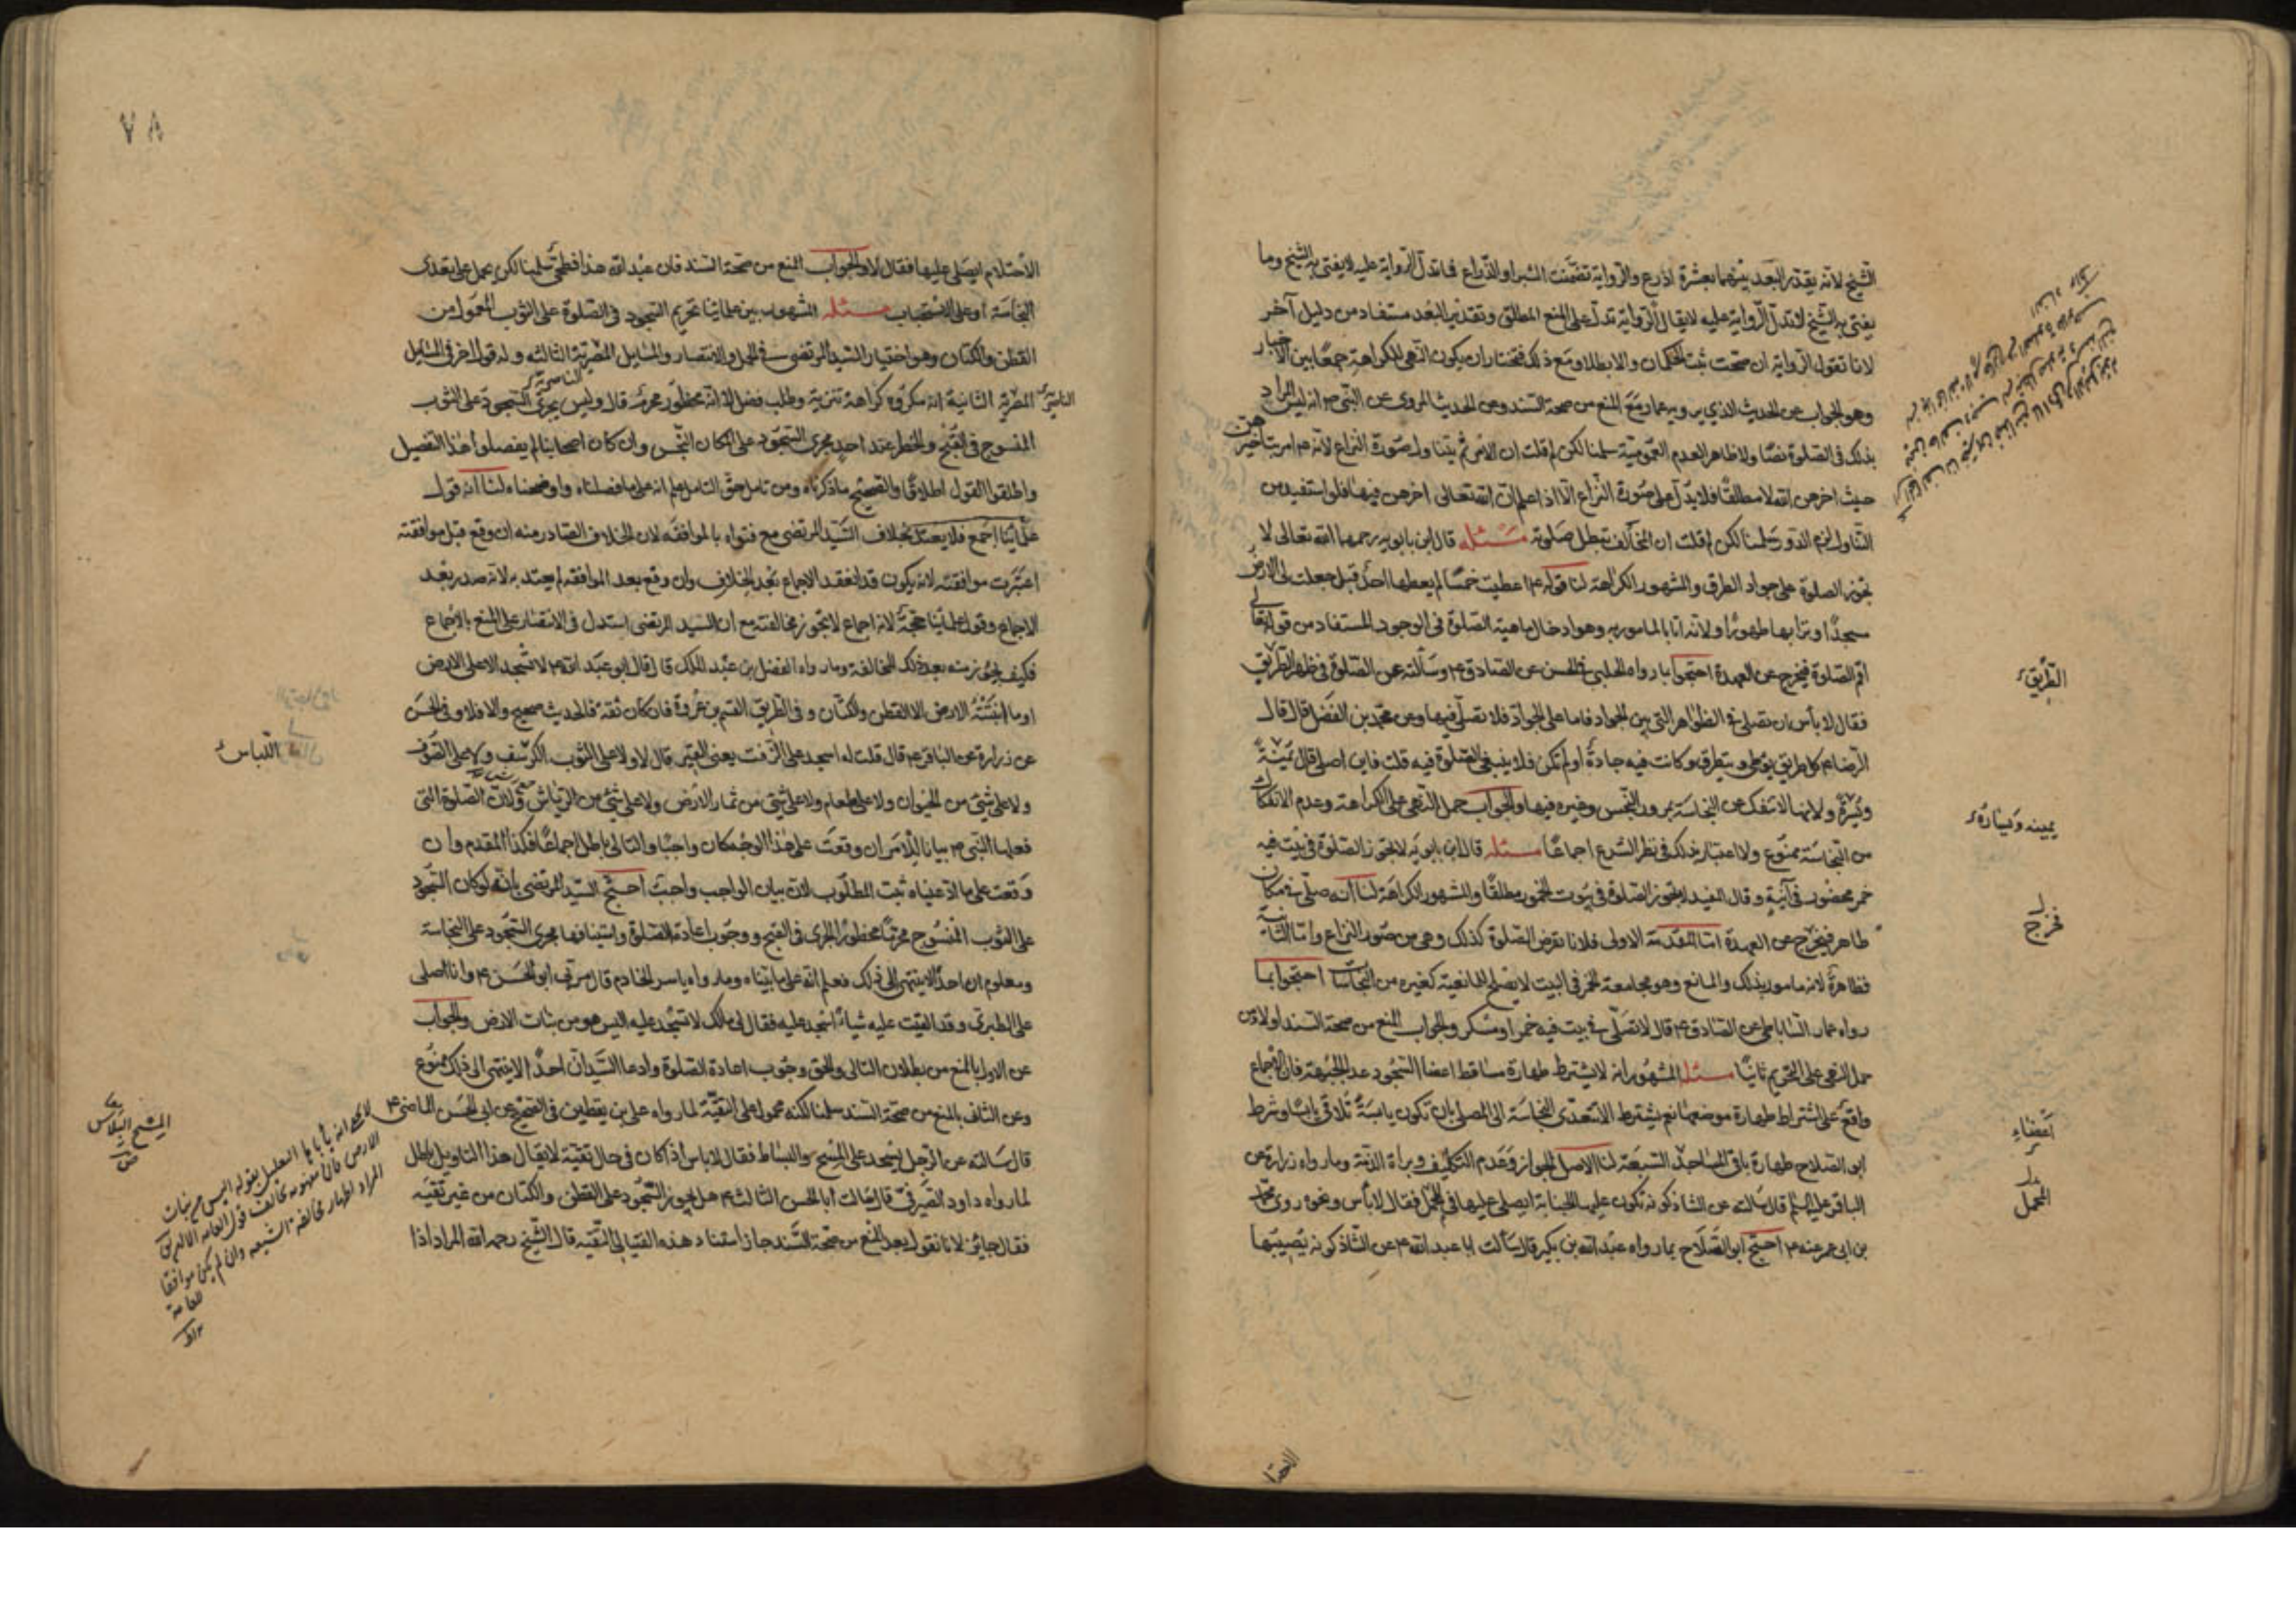 الشيخ لانه يقدر البعد بينهما بعشرة اذرع والرواية تضمنت الشبر او الذراع فما تدل الرواية عليه لا يفتى به الشيخ وما
يفتى به الشيخ لا تدل الرواية عليه لا يقال الرواية تدل على المنع المطلق وتقدير البعد مستفاد من دليل آخر
لانا نقول الرواية ان صحت ثبت الحكمان والا بطلا ومع ذلك فتختار ان يكون النهى للكراهة جمعًا بين الاخبار
وهو الجواب عن الحديث الذي يرويه عمار مع المنع من صحة السند وعن الحديث المروى عن النبى ص انه ليس المراد
بذلك فى الصلوة نصًا ولا ظاهر العدم العمومية سلمنا لكن لم قلت ان الامر ثم يتناول صورة النزاع لانه ع امر بتاخيرهن
حيث اخرهن الله لا مطلقًا فلا يدل على صورة النزاع الا اذا علم ان الله تعالى اخرهن فيها فلو استفيد من
التناول لزم الدور سلمنا لكن لم قلت ان المخالف تبطل صلوته مسئله قال ابن بابويه رحمهما الله تعالى لا
تجوز الصلوة على جواد الطرق والمشهور الكراهة لنا قوله ع اعطيت خمسًا لم يعطها احد قبلى جعلت لى الارض
مسجدًا وترابها طهورًا ولانه اتا بالمامور به وهو ادخال ماهية الصلوة فى الوجود المستفاد من قوله تعالى
اقم الصلوة فيخرج عن العهدة احتجوا بما رواه الحلبى فى الحسن عن الصادق ع وسالته عن الصلوة فى ظهر الطريق
فقال لا بأس ان تصلى فى الظواهر التى بين الجواد فاما على الجواد فلا تصل فيها وعن محمد بن الفضل قال قال
الرضا ع كل طريق يوطى ويتطرق وكانت فيه جادة او لم تكن فلا ينبغى الصلوة فيه قلت فاين اصلى قال يمنة
ويسرة ولانها لا تنفك عن النجاسة بمرور النجس وغيره فيها والجواب حمل النهى على الكراهة وعدم الانفكاك
من النجاسة ممنوع ولا اعتبار بذلك فى نظر الشرع اجماعًا مسئله قال ابن بابويه لا تجوز الصلوة فى بيت فيه
خمر محصور فى آنية وقال المفيد لا تجوز الصلوة فى بيوت الخمور مطلقًا والمشهور الكراهة لنا انه صلى فى مكان
طاهر فيخرج عن العهدة اما المقدمة الاولى فلانا نفرض الصلوة كذلك وهى من صور النزاع واما الثانية
فظاهرة لانه مامور بذلك والمانع وهو مجامعة الخمر فى البيت لا يصلح للمانعية كغيره من النجاسات احتجوا بما
رواه عمار الساباطى عن الصادق ع قال لا تصلى فى بيت فيه خمر او مسكر والجواب المنع من صحة السند اولا ومن
حمل النهى على التحريم ثانيًا مسئله المشهور انه لا يشترط طهارة مساقط اعضا السجود عدا الجبهة فان الاجماع
واقع على اشتراط طهارة موضعها نعم يشترط الا تتعدى النجاسة الى المصلى بان تكون يابسة تلاقى يابسًا وشرط
ابو الصلاح طهارة باقى المساجد السبعة لنا الاصل الجواز وعدم التكليف وبراة الذمة وما رواه زرارة عن
الباقر عليه السلم قال سالته عن الشاذكونه تكون عليها الجنابة ايصلى عليها فى المحمل فقال لا بأس ونحوه روى محمد
بن ابى عمير عنه ع احتج ابو الصلاح بما رواه عبد الله بن بكير قال سألت ابا عبد الله ع عن الشاذكونه يصيبها
الطريق
يمينه ويساره
فخرج
اعضاء
المحمل
٧٨
الاحتلام ايصلى عليها فقال لا والجواب المنع من صحة السند فان عبد الله هذا فطحى سلمنا لكن يحمل على تعدى
النجاسة او على الاستحباب مسئله المشهور بين علمائنا تحريم السجود فى الصلوة على الثوب المعمول من
القطن والكتان وهو اختيار السيد المرتضى فى الجمل والانتصار والمسايل المصرية الثالثة وله قول اخر فى المسايل
المصرية الثانية انه مكروه كراهة تنزيه وطلب فضل لا انه محظور محرم قال وليس يجرى السجود على الثوب
المنسوج فى القبح والخطر عند احد مجرى السجود على المكان النجس وان كان اصحابنا لم يفصلوا هذا التفصيل
واطلقوا القول اطلاقًا والصحيح ما ذكرناه ومن تامل حق التامل علم انه على ما فصلناه واوضحناه لنا انه قول
علمائنا اجمع فلا يعتد بخلاف السيد المرتضى مع فتواه بالموافقة لان الخلاف الصادر منه ان وقع قبل موافقته
اعتبرت موافقته لانه يكون قد انعقد الاجماع بعد الخلاف وان وقع بعد الموافقه لم يعتد به لانه صدر بعد
الاجماع وقول علمائنا حجة لانه اجماع لا تجوز مخالفته مع ان السيد المرتضى استدل فى الانتصار على المنع بالاجماع
فكيف يجوز منه بعد ذلك المخالفة وما رواه الفضل بن عبد الملك قال قال ابو عبد الله ع لا تسجد الا على الارض
او ما انبتته الارض الا القطن والكتان وفى الطريق القسم بن عروة فان كان ثقة فالحديث صحيح والا فلا وفى الحسن
عن زرارة عن الباقر ع قال قلت له اسجد على الزفت يعنى القير قال لا ولا على الثوب الكرسف ولا على الصوف
ولا على شئ من الحيوان ولا على طعام ولا على شئ من ثمار الارض ولا على شئ من الرياش ولان الصلوة التى
فعلها النبى ص بيانا للامر ان وقعت على هذا الوجه كان واجبًا والتالى باطل اجماعًا فكذا المقدم وان
وقعت على ما ادعيناه ثبت المطلوب لان بيان الواجب واجب احتج السيد المرتضى بانه لو كان السجود
على الثوب المنسوج محرمًا محظورًا لجرى فى القبح ووجوب اعادة الصلوة واستينافها مجرى السجود على النجاسة
ومعلوم ان احدًا لا ينتهى الى ذلك فعلم انه على ما بيناه وما رواه ياسر الخادم قال مر بى ابو الحسن ع وانا اصلى
على الطبرى وقد القيت عليه شيئًا اسجد عليه فقال لى مالك لا تسجد عليه اليس هو من نبات الارض والجواب
عن الاول بالمنع من بطلان التالى والحق وجوب اعادة الصلوة وادعا السيد ان احدًا لا ينتهى الى ذلك ممنوع
وعن الثانى بالمنع من صحة السند سلمنا لكنه محمول على التقية لما رواه على بن يقطين فى الصحيح عن ابى الحسن الماضى ع
قال سالته عن الرجل يسجد على المسح والبساط فقال لا باس اذا كان فى حال تقية لا يقال هذا التاويل باطل
لما رواه داود الصيرفى قال سالت ابا الحسن الثالث ع هل يجوز السجود على القطن والكتان من غير تقية
فقال جائز لانا نقول بعد المنع من صحة السند جاز استناد هذه الفتيا الى التقية قال الشيخ رحمه الله المراد اذا
الناصرية
اللباس
المسح البلاس
لا يخفى انه يأبا التعليل بقوله اليس من نبات
الارض فان مفهومه مخالف قول العامه
المراد اظهار مخالفة الشيعه وان لم يكن موافقا
للعامة